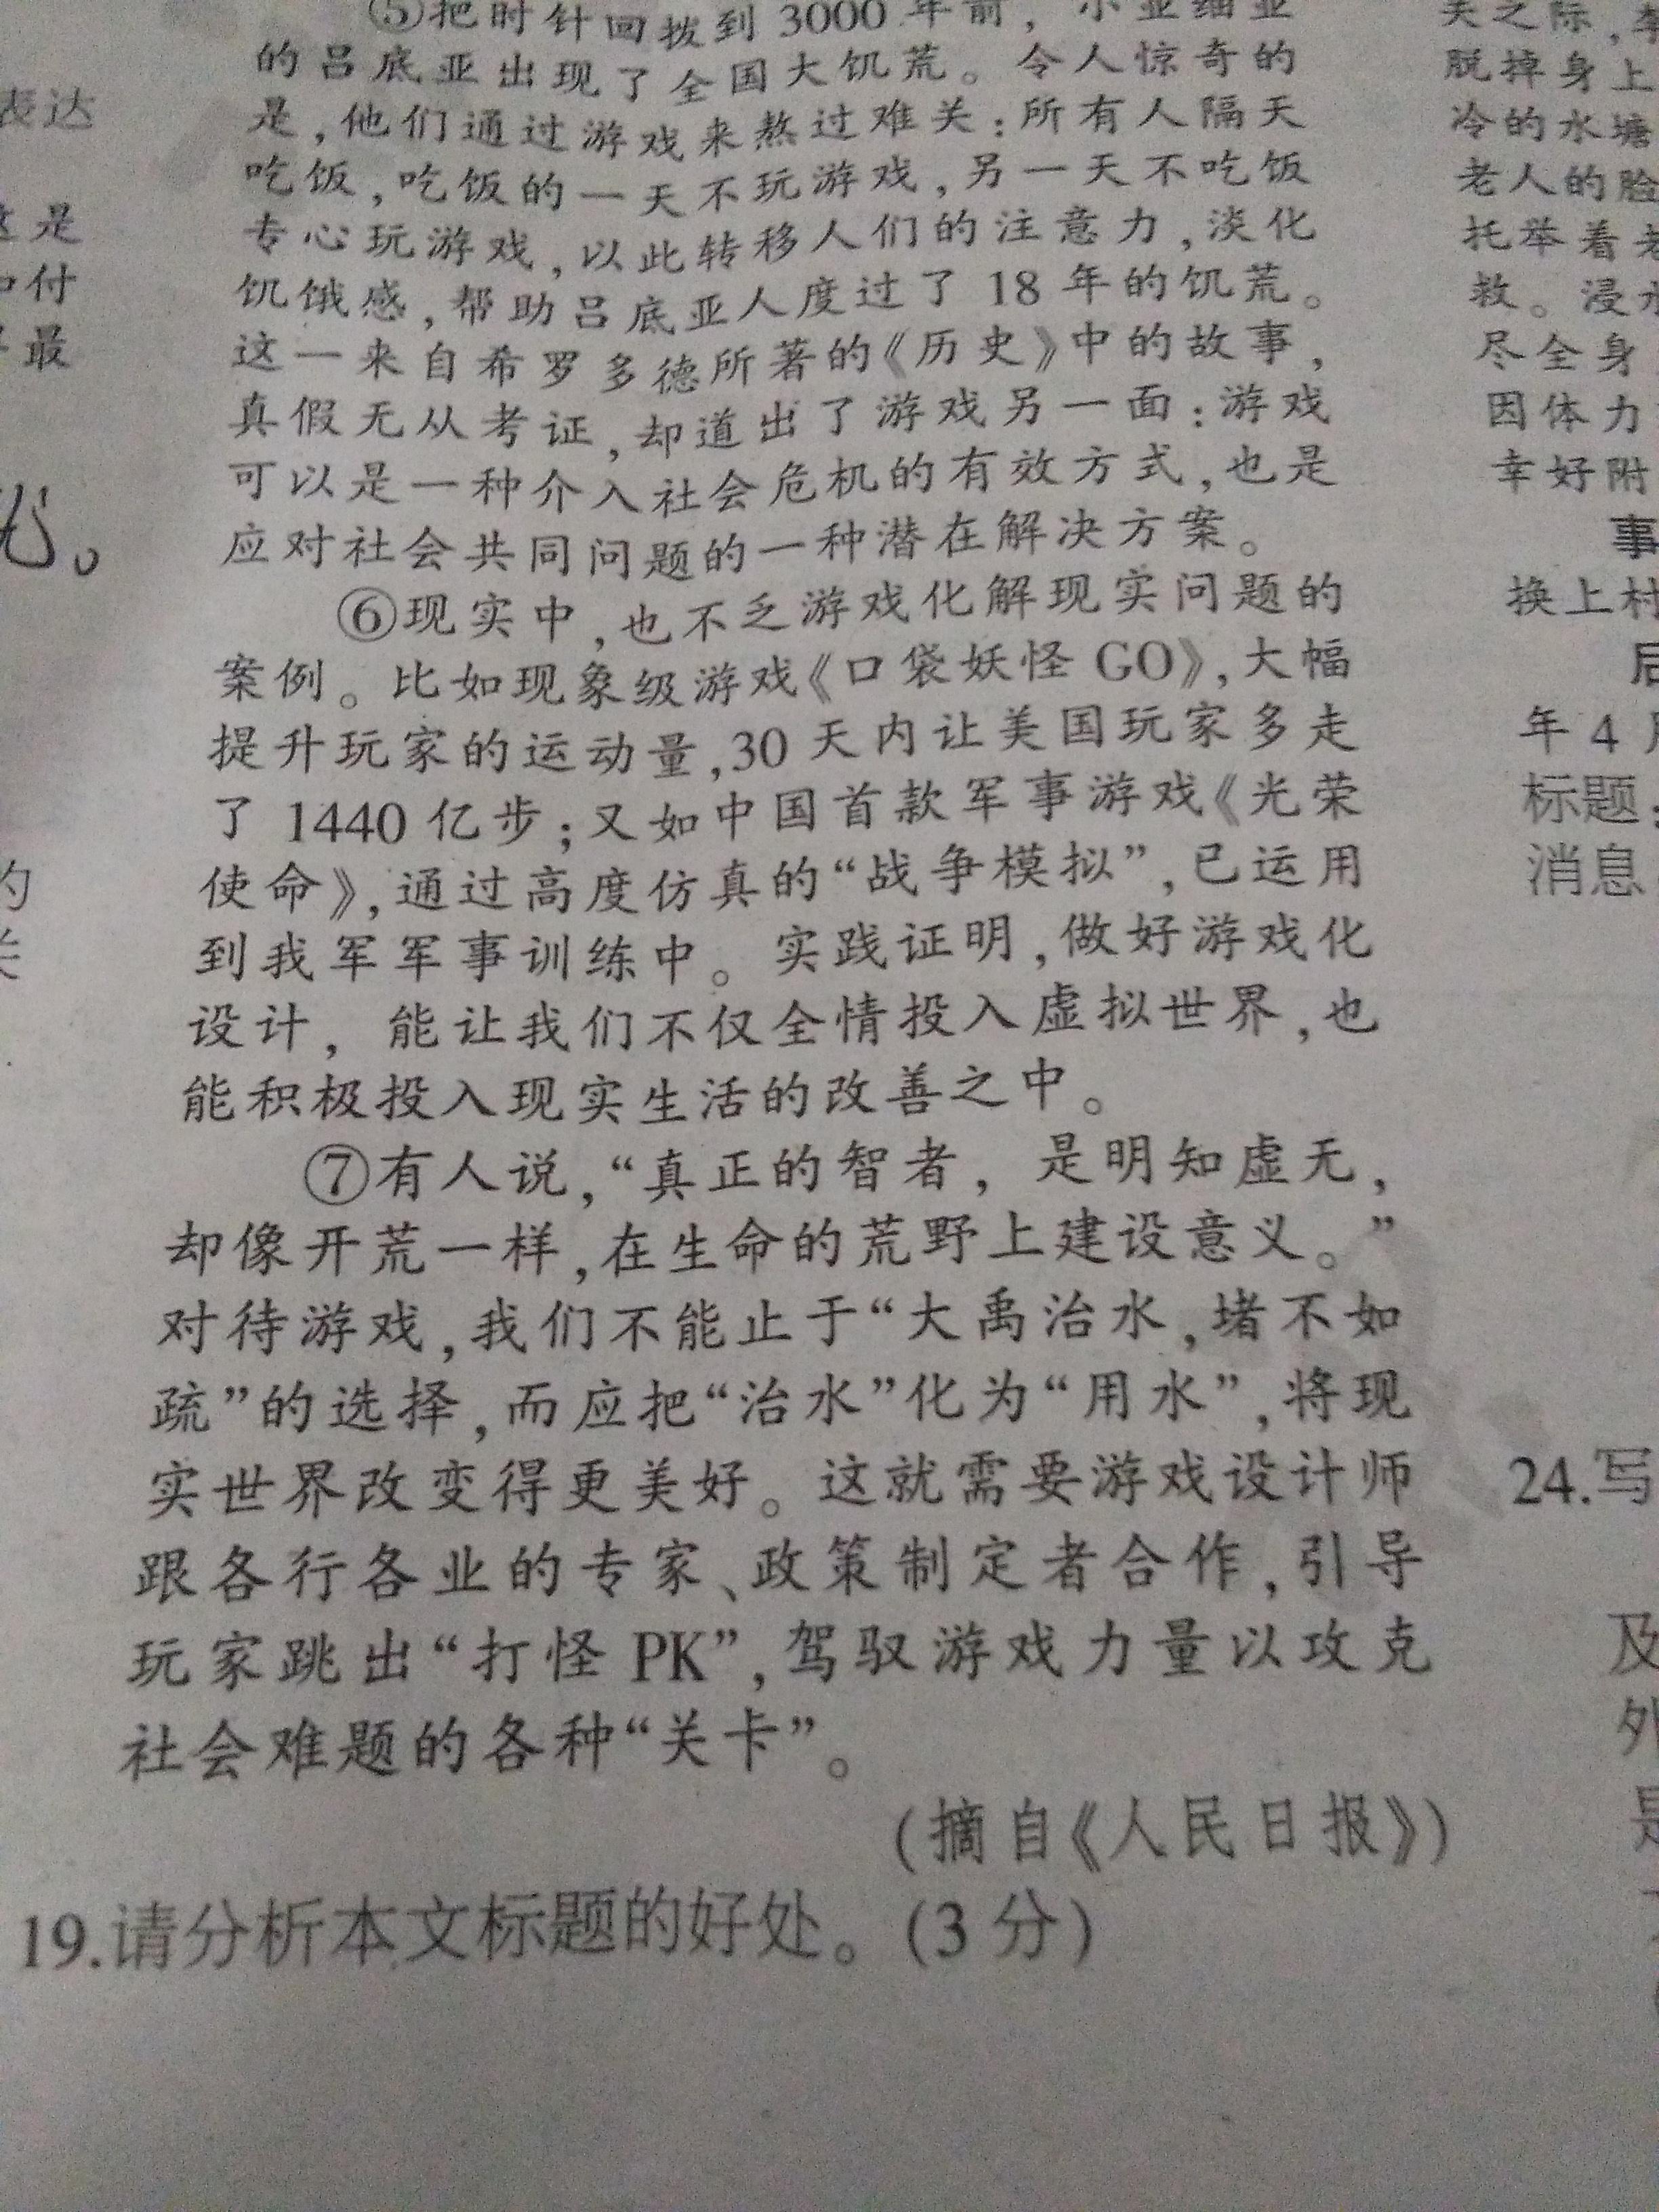 ⑤把时针回拨到3000年前，小亚细亚
的吕底亚出现了全国大饥荒。令人惊奇的
是，他们通过游戏来熬过难关：所有人隔天
吃饭，吃饭的一天不玩游戏，另一天不吃饭
专心玩游戏，以此转移人们的注意力，淡化
饥饿感，帮助吕底亚人度过了18年的饥荒。
这一来自希罗多德所著的《历史》中的故事，
真假无从考证，却道出了游戏另一面：游戏
可以是一种介入社会危机的有效方式，也是
应对社会共同问题的一种潜在解决方案。
⑥现实中，也不乏游戏化解现实问题的
案例。比如现象级游戏《口袋妖怪GO》，大幅
提升玩家的运动量，30天内让美国玩家多走
了1440亿步；又如中国首款军事游戏《光荣
使命》，通过高度仿真的“战争模拟”，已运用
到我军军事训练中。实践证明，做好游戏化
设计，能让我们不仅全情投入虚拟世界，也
能积极投入现实生活的改善之中。
⑦有人说，“真正的智者，是明知虚无，
却像开荒一样，在生命的荒野上建设意义。”
对待游戏，我们不能止于“大禹治水，堵不如
疏”的选择，而应把“治水”化为“用水”，将现
实世界改变得更美好。这就需要游戏设计师
跟各行各业的专家、政策制定者合作，引导
玩家跳出“打怪PK”，驾驭游戏力量以攻克
社会难题的各种“关卡”。
（摘自《人民日报》）
19.请分析本文标题的好处。（3分）
表达
是
付
最
的
关之际，
脱掉身上
冷的水塘
老人的脸
托举着老
救。浸水
尽全身
因体力
幸好附
事
换上村
后
年4月
标题：
消息
24.写
及
外
是